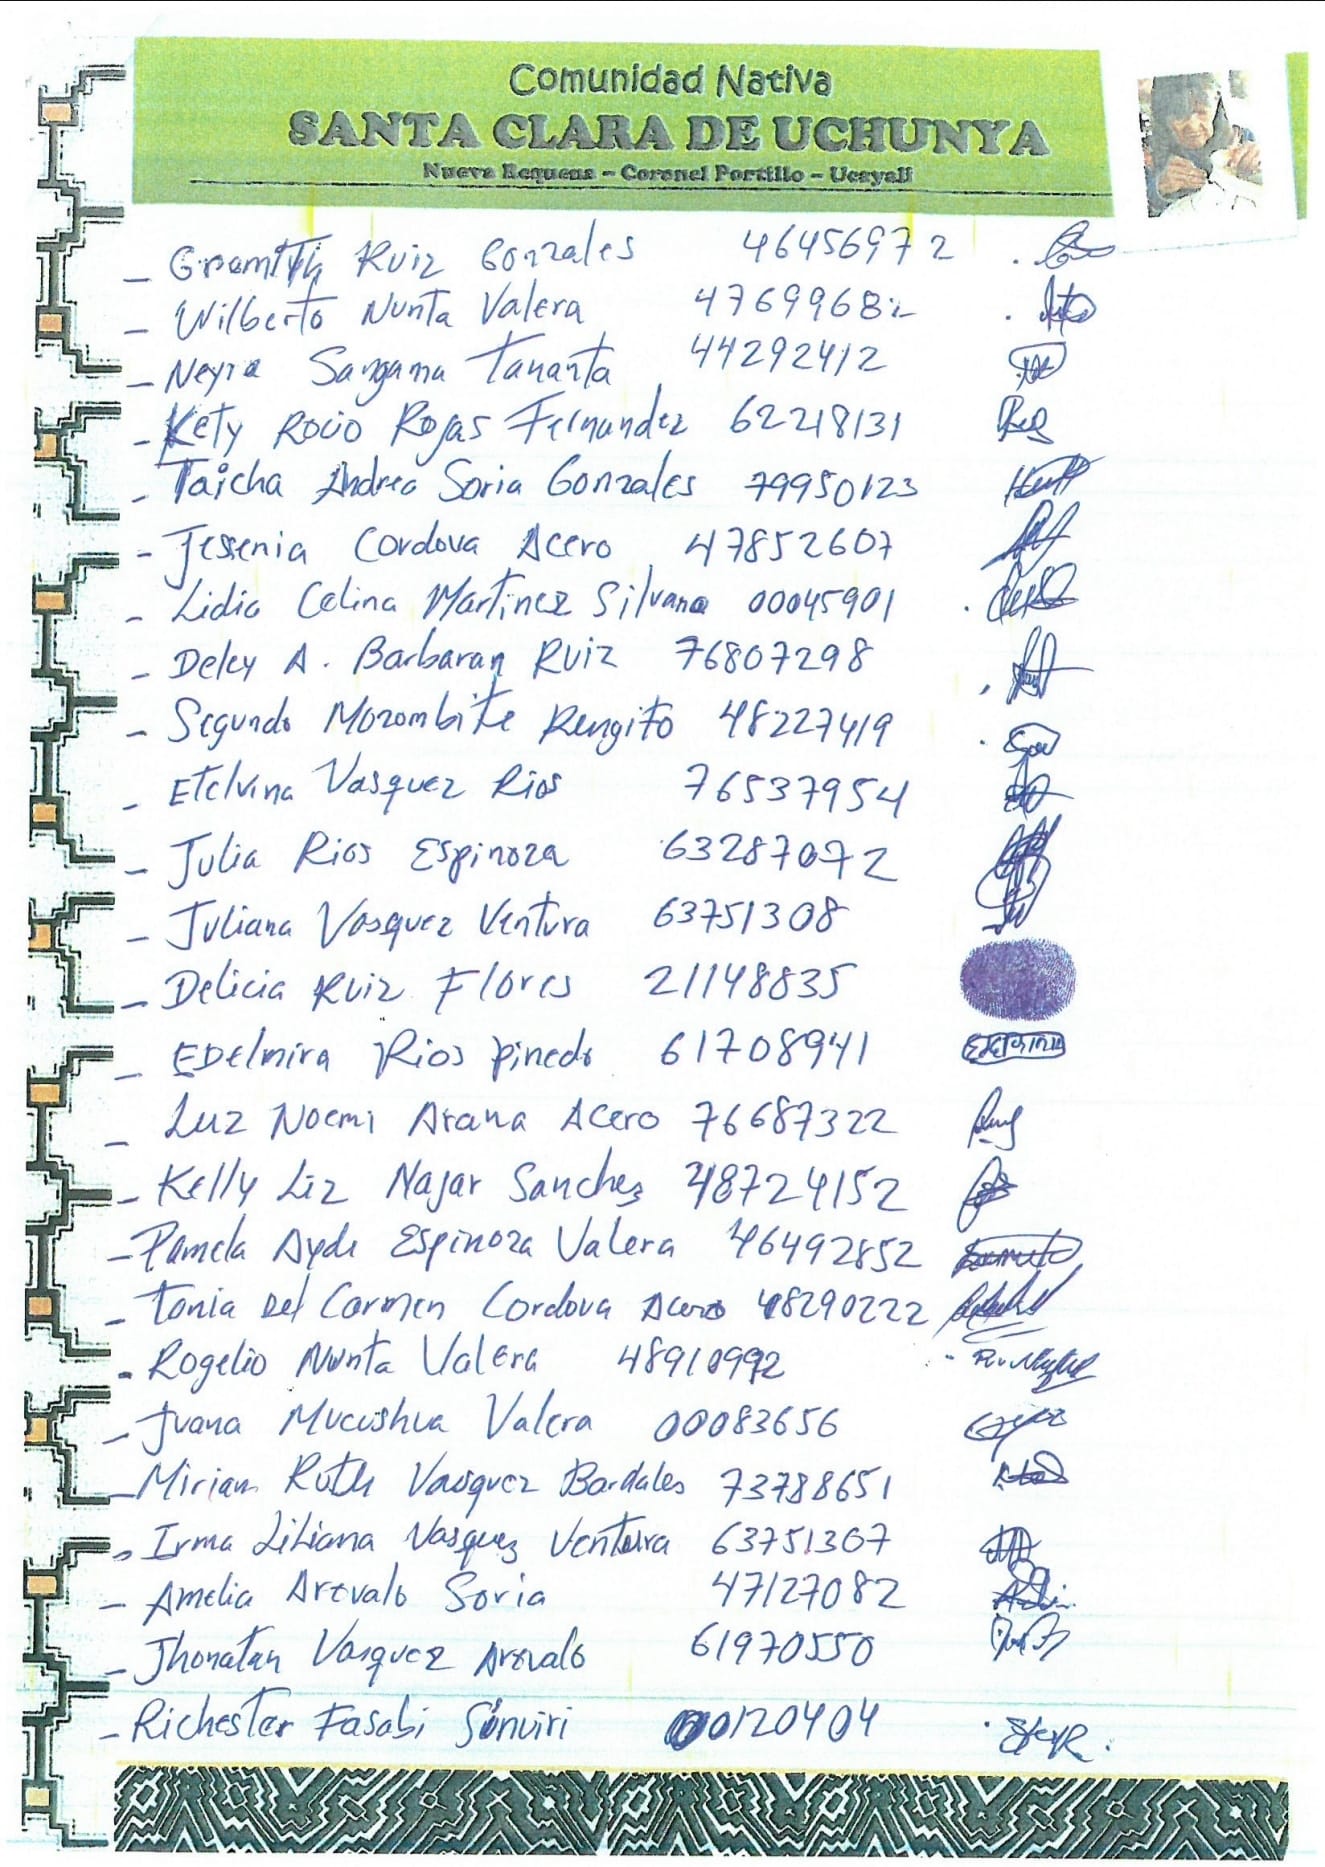 Comunidad Nativa
SANTA CLARA DE UCHUNYA
Nueva Requena – Coronel Portillo – Ucayali
_ Ruiz Gonzales 46456972
_ Wilberto Nunta Valera 47699682
_ Neyra Sangama Tananta 44292412
- Kety Rocio Rojas Fernandez 62218131
- Taicha Andrea Soria Gonzales 79950123
- Jessenia Cordova Acero 47852607
- Lidia Celina Martinez Silvano 00045901
- Delcy A. Barbaran Ruiz 76807298
- Segundo Mozombite Rengifo 48227419
- Etelvina Vasquez Rios 76537954
- Julia Rios Espinoza 63287072
- Juliana Vasquez Ventura 63751308
- Delicia Ruiz Flores 21148835
_ EDelmira Rios pinedo 61708941
_ Luz Noemi Arana Acero 76687322
- Kelly Liz Najar Sanchez 48724152
- Pamela Ayde Espinoza Valera 46492852
- Tania Del Carmen Cordova Acero 48290222
- Rogelio Nunta Valera 48910992
- Juana Mucushua Valera 00083656
- Mirian Ruth Vasquez Bardales 73788651
- Irma Liliana Vasquez Ventura 63751307
- Amelia Arevalo Soria 47127082
- Jhonatan Vasquez Arevalo 61970550
- Richester Fasabi Sinuiri 00120404